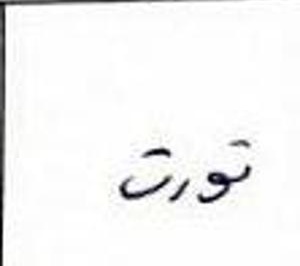 تورت